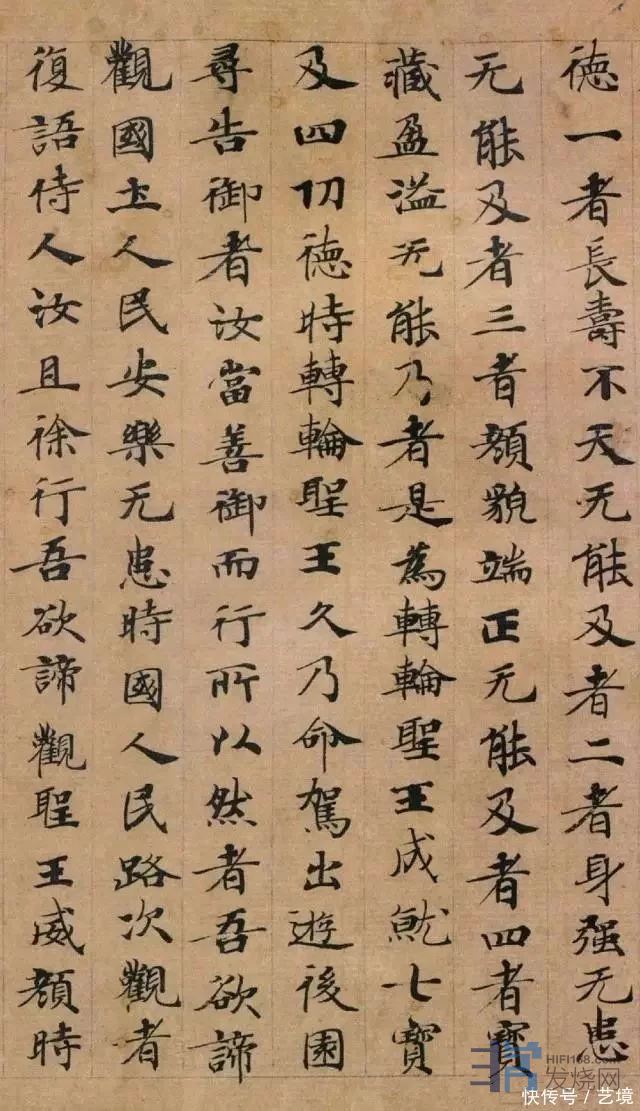 德一者長壽不夭无能及者二者身强无患
无能及者三者顏貌端正无能及者四者寶
藏盈溢无能乃者是為轉輪聖王成就七寶
及四功德時轉輪聖王久乃命駕出遊後園
尋告御者汝當善御而行所以然者吾欲諦
觀國土人民安樂无患時國人民路次觀者
復語侍人汝且徐行吾欲諦觀聖王威顏時
HIFI168.com
发烧网
快传号 / 艺境